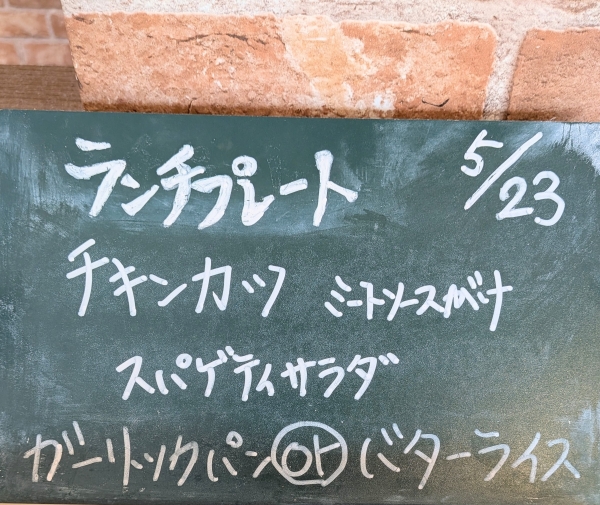 ランチプレート 5/23
チキンカツ ミートソースがけ
スパゲティサラダ
ガーリックパン or バターライス